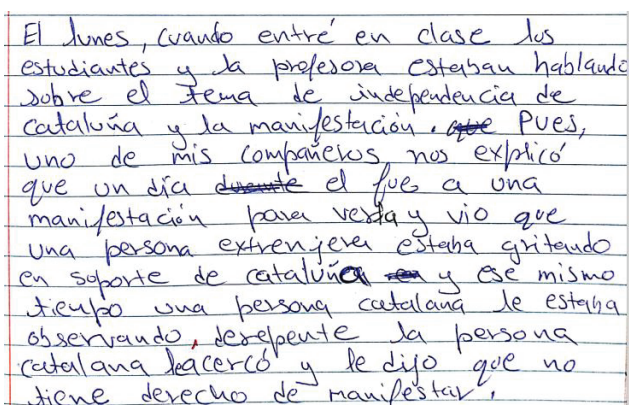 El lunes, cuando entré en clase los
estudiantes y la profesora estaban hablando
sobre el tema de independencia de
cataluña y la manifestación. que Pues,
uno de mis compañeros nos explicó
que un día durante el fue a una
manifestación para verla y vio que
una persona extrenjera estaba gritando
en soporte de cataluña en y ese mismo
tiempo una persona catalana le estaba
observando, derepente la persona
catalana leacercó y le dijo que no
tiene derecho de manifestar.